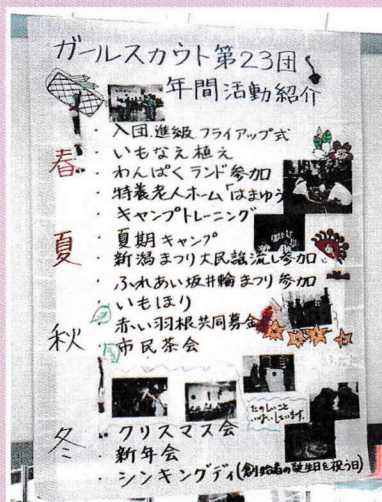 ガールスカウト第23団
年間活動紹介
春
・入団.進級.フライアップ式
・いもなえ植え
・わんぱくランド参加
・特養老人ホーム「はまゆう
・キャンプトレーニング
夏
・夏期キャンプ
・新潟まつり大民謡流し参加
・ふれあい坂井輪まつり参加
・いもほり
秋
・赤い羽根共同募金
・市民茶会
たのしいこと
いっぱいしています。
冬
・クリスマス会
・新年会
・シンキングディ(創始者の誕生日を祝う日)